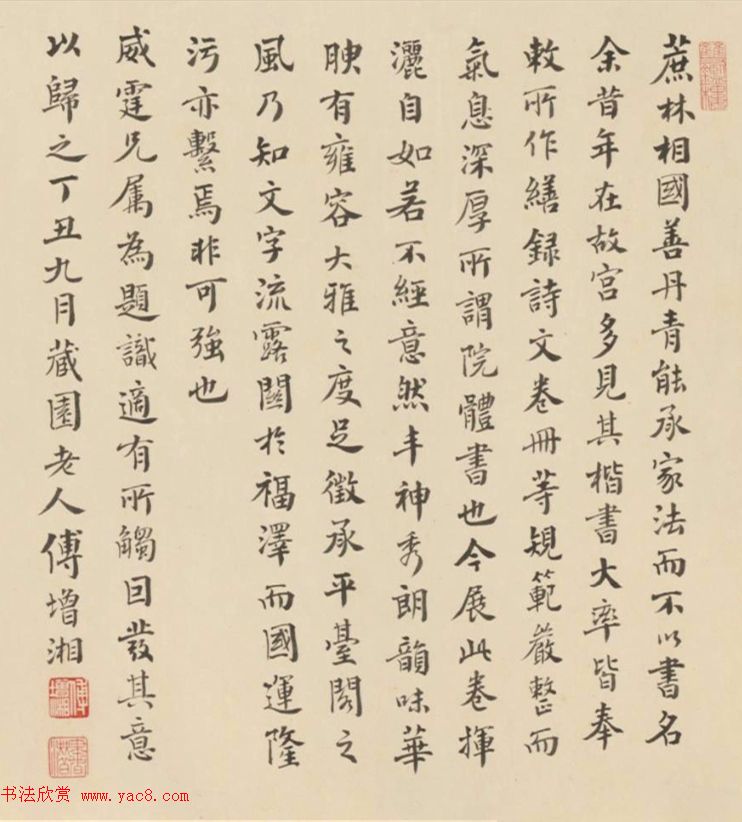 蔗林相國善丹青能承家法而不以書名
余昔年在故宮多見其楷書大率皆奉
敕所作繕録詩文卷冊等規範嚴整而
氣息深厚所謂院體書也今展此卷揮
灑自如若不經意然丰神秀朗韻味華
腴有雍容大雅之度足徵承平臺閣之
風乃知文字流露關於福澤而國運隆
污亦繫焉非可強也
威霆兄属為題識適有所觸因發其意
以歸之丁丑九月藏園老人傅增湘
书法欣赏 www.yac8.com